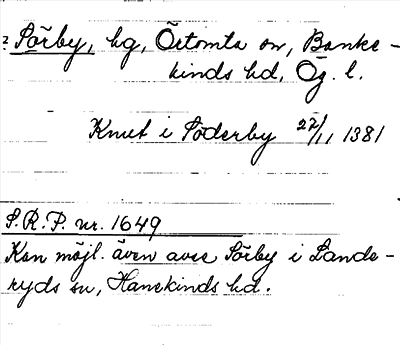 ? Sörby, hg, Örtomta sn, Banke-
kinds hd, Ög. l.
Knut i Söderby 22/11 1381
S.R.P. nr. 1649
Kan möjl. även avse Sörby i Lande-
ryds sn, Hanekinds hd.